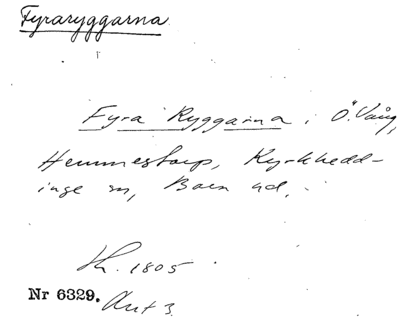 Fyraryggarna
Fyra Ryggarna i Ö. Vång,
Hemmestorp, Kyrkhedd-
inge sn, Bara hd.
Sk. 1805
Nr 6329. Akt 3